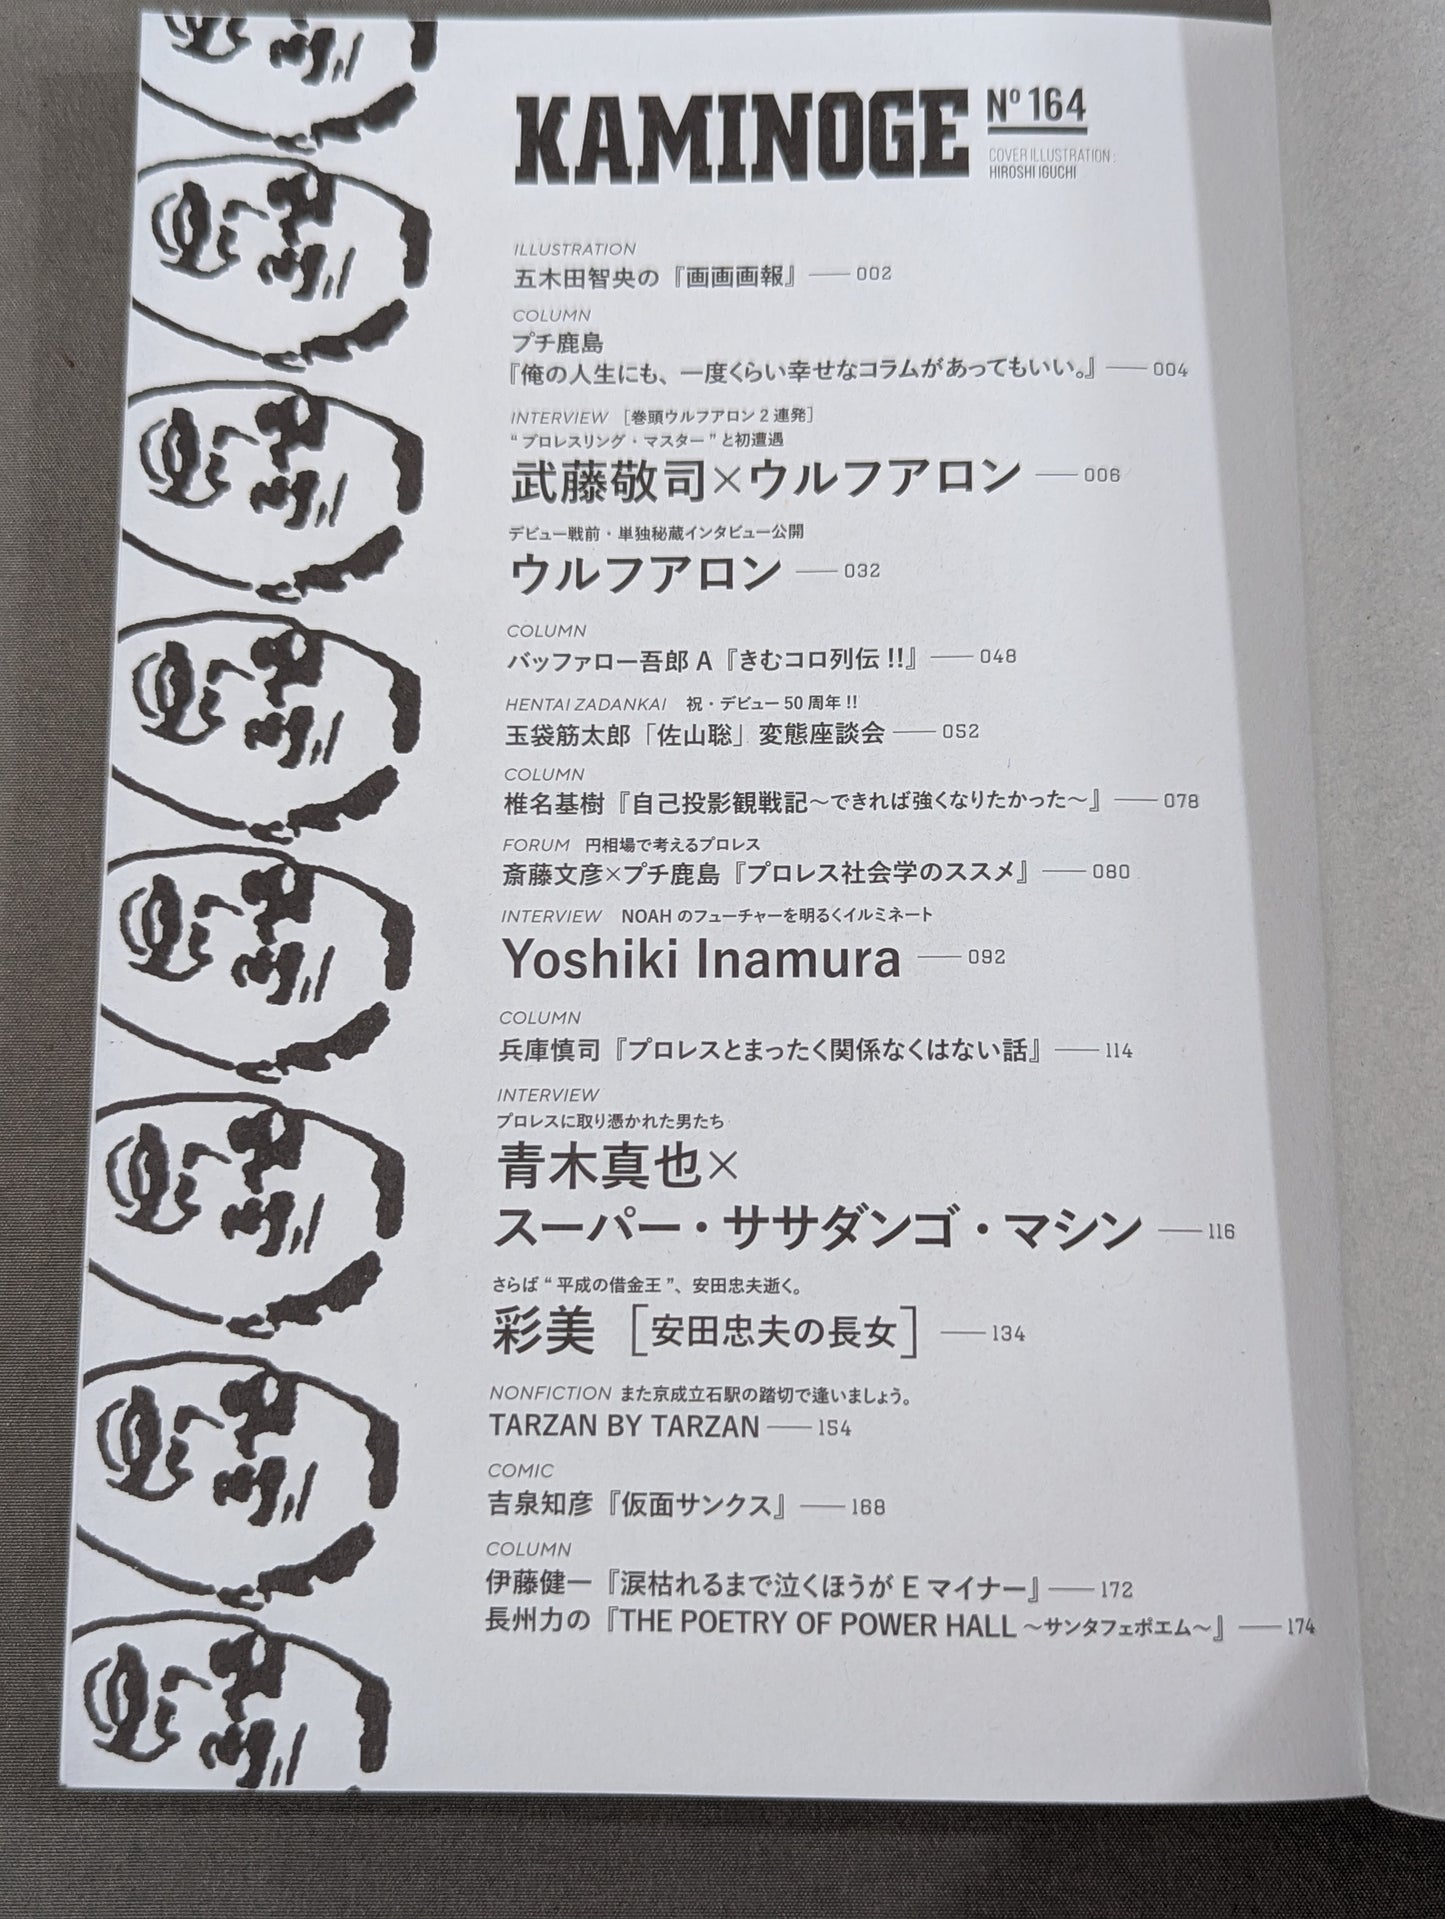 KAMINOGE Nº 164
COVER ILLUSTRATION :
HIROSHI IGUCHI
ILLUSTRATION
五木田智央の『画画画報』 —— 002
COLUMN
プチ鹿島
『俺の人生にも、一度くらい幸せなコラムがあってもいい。』 —— 004
INTERVIEW ［巻頭ウルフアロン2連発］
“プロレスリング・マスター”と初遭遇
武藤敬司×ウルフアロン —— 006
デビュー戦前・単独秘蔵インタビュー公開
ウルフアロン —— 032
COLUMN
バッファロー吾郎 A『きむコロ列伝!!』 —— 048
HENTAI ZADANKAI 祝・デビュー50周年!!
玉袋筋太郎「佐山聡」変態座談会 —— 052
COLUMN
椎名基樹『自己投影観戦記～できれば強くなりたかった～』 —— 078
FORUM 円相場で考えるプロレス
斎藤文彦×プチ鹿島『プロレス社会学のススメ』 —— 080
INTERVIEW NOAHのフューチャーを明るくイルミネート
Yoshiki Inamura —— 092
COLUMN
兵庫慎司『プロレスとまったく関係なくはない話』 —— 114
INTERVIEW
プロレスに取り憑かれた男たち
青木真也×
スーパー・ササダンゴ・マシン —— 116
さらば“平成の借金王”、安田忠夫逝く。
彩美［安田忠夫の長女］ —— 134
NONFICTION また京成立石駅の踏切で逢いましょう。
TARZAN BY TARZAN —— 154
COMIC
吉泉知彦『仮面サンクス』 —— 168
COLUMN
伊藤健一『涙枯れるまで泣くほうがEマイナー』 —— 172
長州力の『THE POETRY OF POWER HALL ～サンタフェポエム～』 —— 174